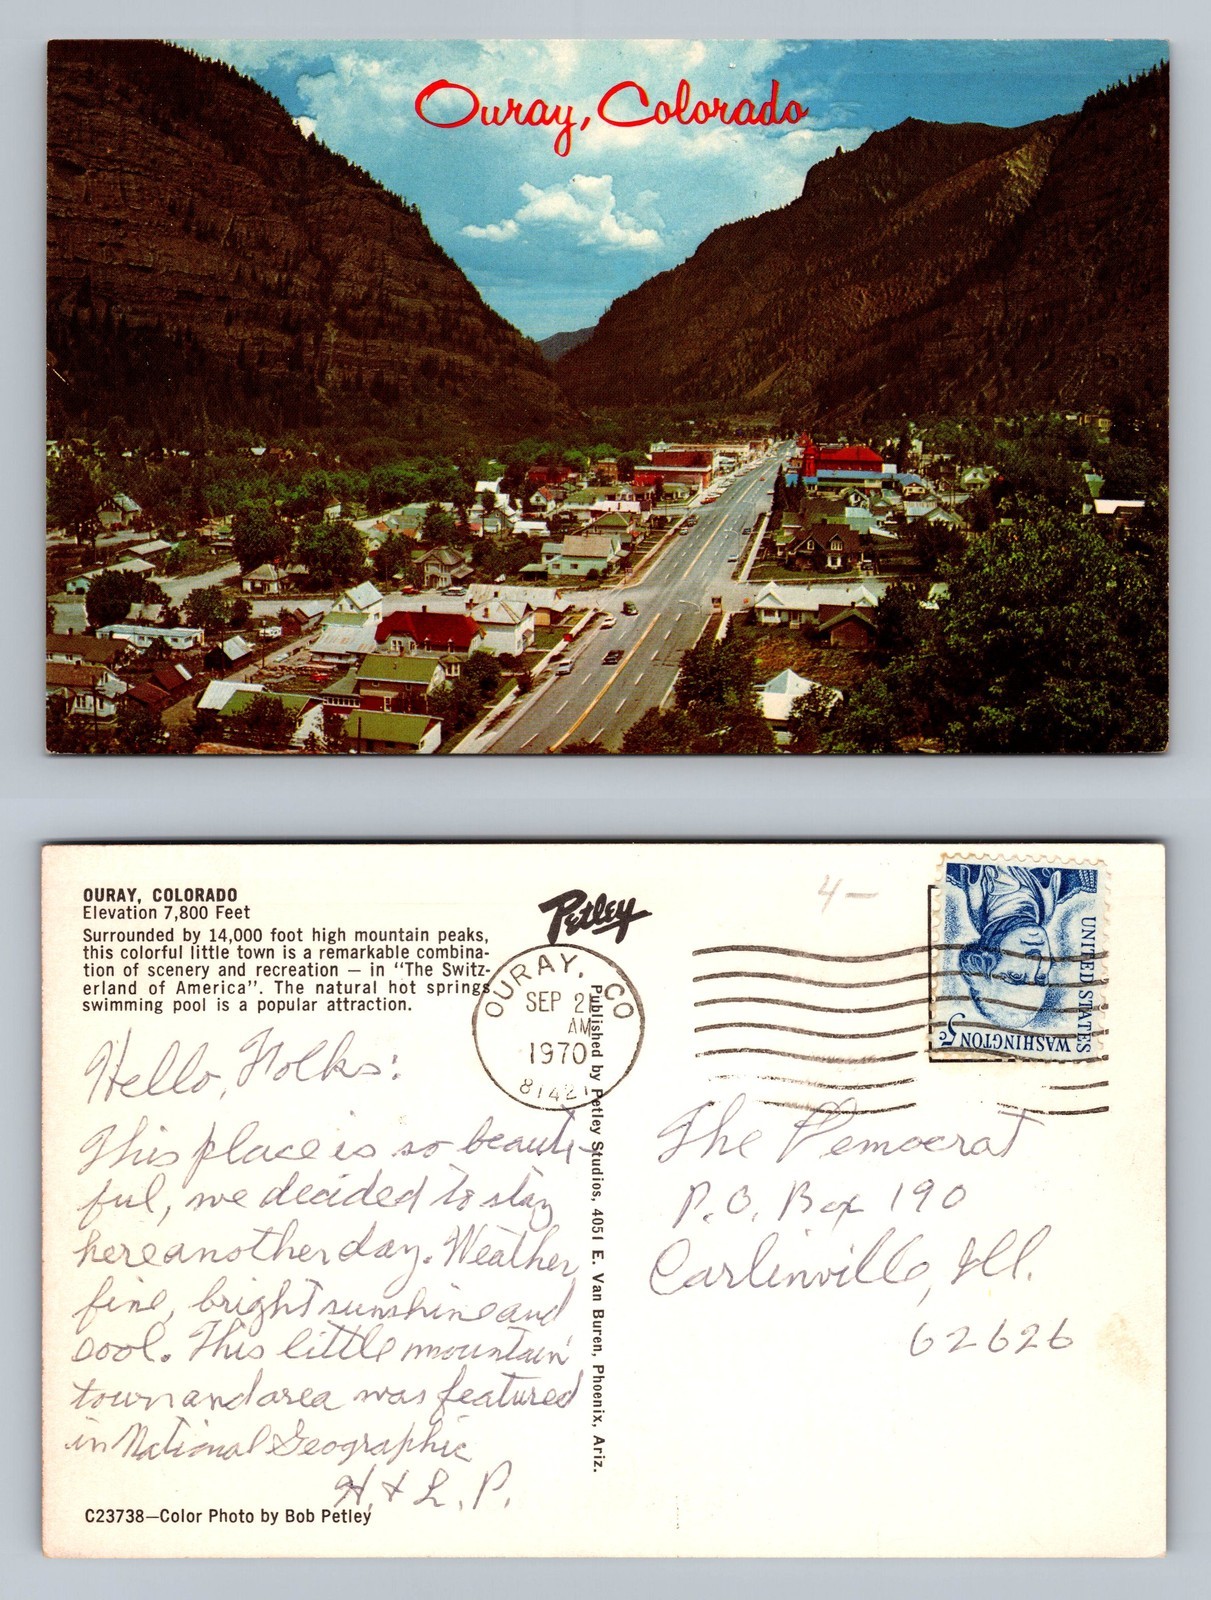 Ouray, Colorado
OURAY, COLORADO
Elevation 7,800 Feet
Surrounded by 14,000 foot high mountain peaks,
this colorful little town is a remarkable combina-
tion of scenery and recreation — in "The Switz-
erland of America". The natural hot springs
swimming pool is a popular attraction.
Hello, Folks:
This place is so beauti-
ful, we decided to stay
here another day. Weather
fine, bright sunshine and
cool. This little mountain
town and area was featured
in National Geographic
H. & L. P.
C23738—Color Photo by Bob Petley
Petley
Published by Petley Studios, 4051 E. Van Buren, Phoenix, Ariz.
OURAY, CO
SEP 21
AM
1970
81421
4—
UNITED STATES
WASHINGTON 5c
The Democrat
P.O. Box 190
Carlinville, Ill.
62626